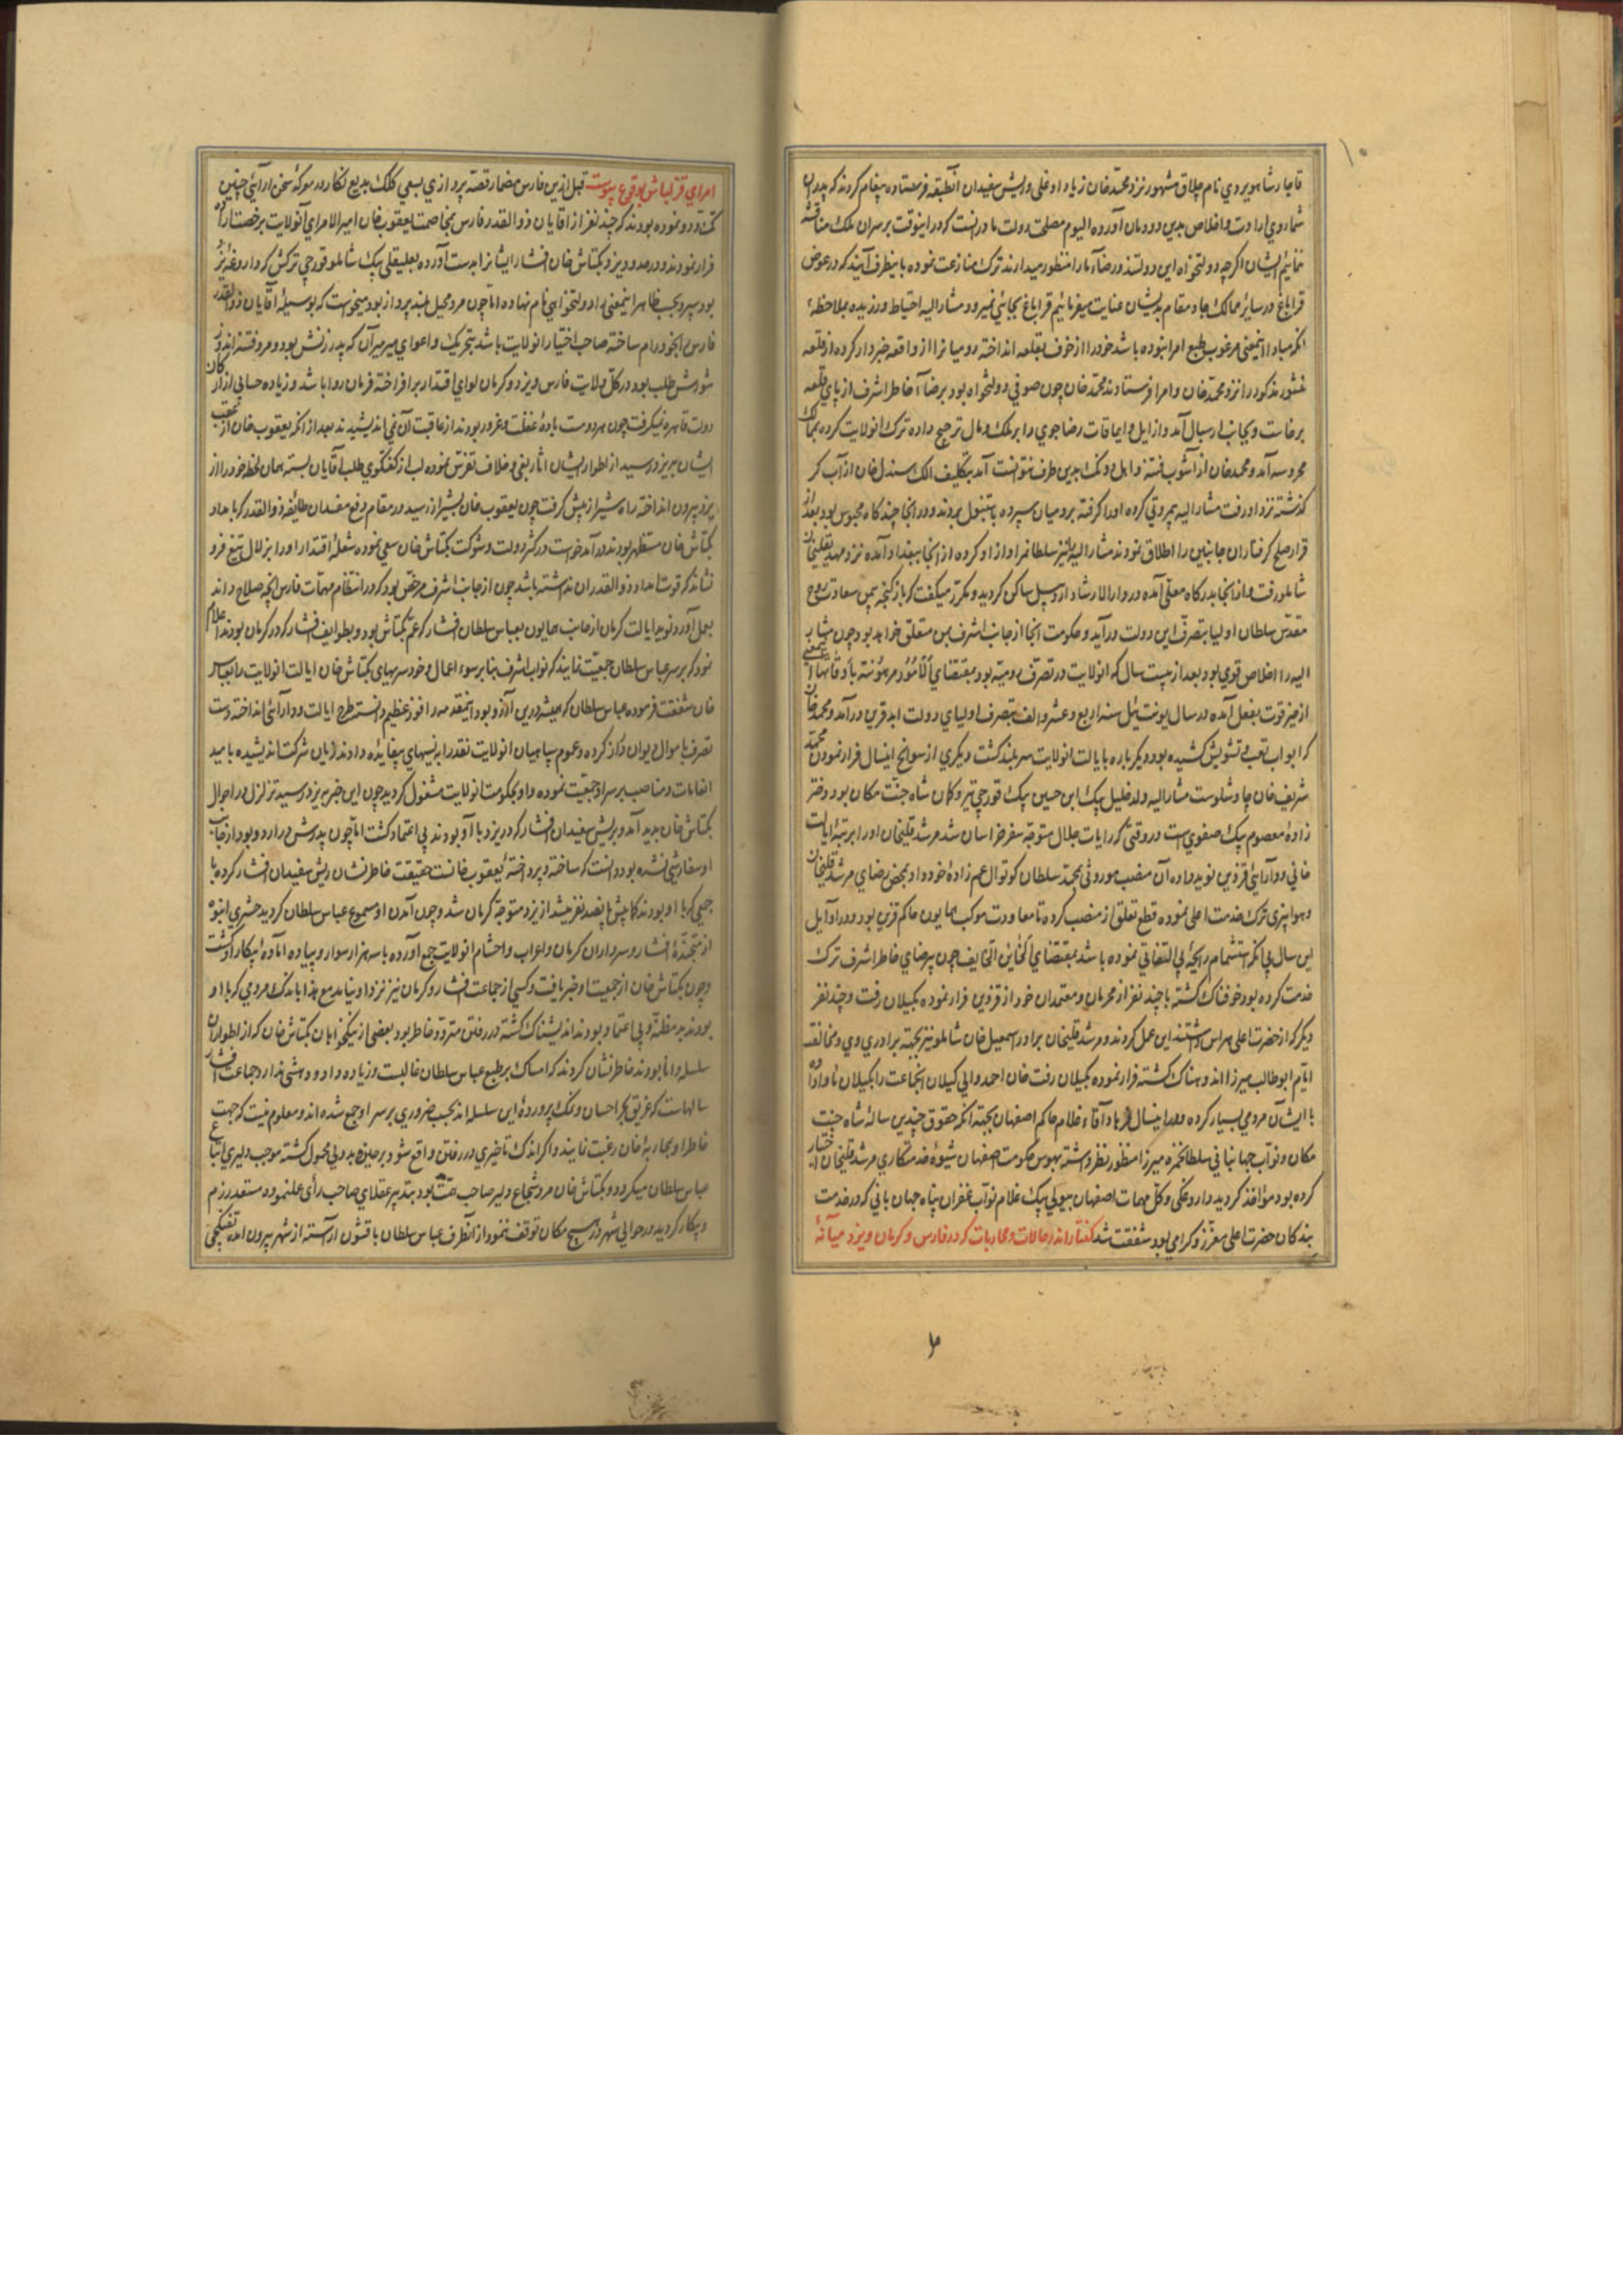 قاجار شاهویردی نام چلاق مشهور نزد محمد خان زیاد اوغلی و ریش سفیدان آنطبقه فرستاده پیغام کردند که پدران
شما روی ارادت و اخلاص بدین دودمان آورده الیوم مصلحت دولت ما در انست که در اینوقت بر سر ان ملک مناقشه
ننمائیم ایشان اگر چه دولتخواه این دولتند و رضاء ما را منظور میدارند ترک منازعت نموده باینطرف آیند که در عوض
قراباغ در سایر ممالک جا و مقام بدیشان عنایت میفرمائیم قراباغ بجائی نمیرود مشار الیه احتیاط ورزیده بملاحظه
انکه مبادا اینمعنی مرغوب طبع امرا نبوده باشد خود را از خوف بقلعه انداخته رومیانرا از واقعه خبردار کرده از قلعه
منشور مذکور را نزد محمد خان و امرا فرستادند محمد خان چون صوفی و دولتخواه بود برضاء خاطر اشرف از پای قلعه
برخاست و بجانب ارسبال آمد و از ایل و ایماقات رضاجوی را بر ملک و مال ترجیح داده ترک انولایت کرده بممالک
محروسه آمد و محمد خان از آشوب فتنه و ایل و کنک بدین طرف نتوانست آمد بتکلیف الک سندل خان از آب کر
گذشته نزد او رفت مشار الیه بیمروتی کرده او را گرفته برومیان سپرده باستنبول بردند و در انجا چند گاه محبوس بود بعد از
قرار صلح گرفتاران جانبین را اطلاق نمودند مشار الیه نیز سلطانمراد ازاد کرده از انجا ببغداد آمده نزد مهدیقلیخان
شاملو رفت و از انجا بدرگاه معلی آمده در دار الارشاد اردبیل ساکن گردید و مکرر میگفت که باز گنجه بیمن سعادت روح
مقدس سلطان اولیا بتصرف این دولت در آید و حکومت انجا از جانب اشرف بمن متعلق خواهد بود چون مشار
الیه را اخلاص قوی بود بعد از بیست سال که انولایت در تصرف رومیه بود بمقتضای الامور مرهونة باوقاتها اینمعنی
از حیز قوت بفعل آمده در سال یونت ئیل سنه اربع و عشر و الف بتصرف اولیای دولت ابد قرین در آمد و محمد خان
که ابواب تعب و تشویش کشیده بود دیگر باره بایالت انولایت سربلند گشت دیگری از سوانح اینسال فرار نمودن محمد
شریف خان چاوشلوست مشار الیه ولد خلیل بیک ابن حسین بیک قورچی تیر و کمان شاه جنت مکان بود و دختر
زاده معصوم بیک صفوی است در وقتی که رایات جلال متوجه سفر خراسان شد مرشد قلیخان او را برتبه ایالت
خانی و دارائی قزوین نوید داده آن منصب موروثی بمحمد سلطان کوتوال عم زاده خود داد و بمحض رضای مرشد قلیخان
و هوا پزی ترک خدمت اعلی نموده قطع تعلق از منصب کرده تا معاودت موکب همایون حاکم قزوین بود و در اوایل
این سال بی انکه استشمام رایحه بی التفاتی نموده باشد بمقتضای الخاین الخایف چون بی رضای خاطر اشرف ترک
خدمت کرده بود خوفناک گشته با چند نفر از محرمان و معتمدان خود از قزوین فرار نموده بگیلان رفت و چند نفر
دیگر که از حضرت اعلی هراس داشتند این عمل کردند و مرشد قلیخان برادر اسمعیل خان شاملو نیز بجهته برادری وی و مخالفت
ایام ابو طالب میرزا اندوهناک گشته فرار نموده بگیلان رفت خان احمد والی گیلان انجماعت را بگیلان راه داده
با ایشان مردمی بسیار کرده و هم اینسال فرهاد آقاء غلام حاکم اصفهان بجهته انکه حقوق چندین ساله شاه جنت
مکان و نواب جهانبانی سلطانحمزه میرزا منظور نظر نداشته بهوس حکومت اصفهان شیوه خدمتکاری مرشد قلیخان اختیار
کرده بود مؤاخذ گردید داروغگی و کل مهمات اصفهان بیولی بیک غلام نواب غفران پناه جهانبانی که در خدمت
بندگان حضرت اعلی معزز و گرامی بود شفقت شد گفتار اندر حالات و محاربات که در فارس و کرمان و یزد میانه
امرای قزلباش بوقوع پیوست قبل ازین فارس مضمار قصه پردازی بسعی کلک بدیع نگار در معرکه سخن ارائی چنین
تک و دو نموده بودند که چند نفر از اقایان ذوالقدر فارس بمخاصمت یعقوب خان امیر الامرای آنولایت برخصت اراده
فرار نمودند و در حدود یزد بکتاش خان افشار ایشانرا بدست آورده بعلیقلی بیک شاملو قورچی ترکش که داروغه یزد
بود سپرد بحسب ظاهر اینمعنی را دولتخواهی نام نهاده اما چون مرد محیل بلند پرواز بود میخواست که بوسیله آقایان ذوالقدر
فارس را بخود رام ساخته صاحب اختیار انولایت باشد بتحریک و اغوای میر میران که پدر زنش بود و مرد فتنه اندوز
شورش طلب بود در کل ولایت فارس و یزد و کرمان لوای اقتدار برافراخته فرمان روا باشد و زیاده حسابی از ارکان
دولت قاهره نمیگرفت چون هر دو مست باده غفلت و غرور بودند از عاقبت آن نمی اندیشیدند بعد از انکه یعقوب خان از تعقب
ایشان بیزد رسید از اطوار ایشان اثار بغی و خلاف تفرس نموده لب از گفتگوی طلب آقایان بسته همان لحظه خود را از
یزد بیرون انداخته راه شیراز پیش گرفت چون یعقوب خان بشیراز رسید در مقام دفع مفسدان طایفه ذوالقدر که با
بکتاش خان مستظهر بودند در آمد خواست در کسر دولت و شوکت بکتاش خان سعی نموده شعله اقتدار او را بزلال تیغ فرو
نشاند که قوت امداد ذوالقدران نداشته باشد چون از جانب اشرف مرخص بود که در انتظام مهمات فارس انچه صلاح داند
بعمل آورد نوید ایالت کرمان از جانب همایون بعباس سلطان افشار که عم بکتاش بود و بطوایف افشار که در کرمان بودند اعلام
نمود که بر سر عباس سلطان جمعیت نمایند که نواب اشرف بنابر سوء اعمال و خودسریهای بکتاش خان ایالت انولایت را بعباس
خان شفقت فرموده عباس سلطان که همیشه درین آرزو بود اینمقدمه را فوز عظیم دانسته طرح ایالت و دارائی انداخته دست
تصرف باموال دیوان دراز کرده و عموم سپاهیان انولایت نقد را به نسیهای بیفایده دادند زیان شرکت اندیشیده بامید
انعامات و مناصب بر سر او جمعیت نموده و او بحکومت انولایت مشغول گردید چون این خبر بیزد رسید تزلزل در احوال
بکتاش خان پدید آمد و بریش سفیدان افشار که در یزد با او بودند بی اعتماد گشت اما چون پدرش در اردو بود از جانب
او سفارشی نشده بود دانست که ساخته و پرداخته یعقوب خانست حقیقت خاطر نشان ریش سفیدان افشار کرده با
جمعی که با او بودند که بیش پانصد نفر میشد از یزد متوجه کرمان شد و چون آمدن او مسموع عباس سلطان گردید حشری انبوه
از متجنده افشار و سرداران کرمان و اعراب و احشام انولایت جمع آورده با سه هزار سوار و پیاده اماده پیکار او گشت
و چون بکتاش خان از جمعیت او خبر یافت و کسی از جماعت افشار و کرمان نیز نزد او نیامد مع هذا باندک مردمی که با او
بودند بد مظنه و بی اعتماد بود اندیشناک گشته در رفتن متردد خاطر بود بعضی از نیکخواهان بکتاش خان که از اطوار ان
سلسله دانا بودند خاطر نشان کردند که امساک بر طبع عباس سلطان غالبست و زیاده داد و دهشی ندارد جماعت افشار
سالهاست که غریق بحر احسان و نمک پرورده این سلسله اند بحسب ضروری بر سر او جمع شده اند و معلوم نیست که جهت
خاطر او بمحاربه خان رغبت نمایند و اگر اندک تاخیری در رفتن واقع شود بر جبن و بد دلی محمول گشته موجب دلیری اتباع
عباس سلطان میگردد و بکتاش خان مرد شجاع دلیر صاحب همت بود بتدبیر عقلای صاحب رأی عمل نموده مستعد رزم
و پیکار گردید در حوالی شهر در هیچ مکان توقف ننمود از آنطرف عباس سلطان با قشون اراسته از شهر بیرون امده تفنگچی